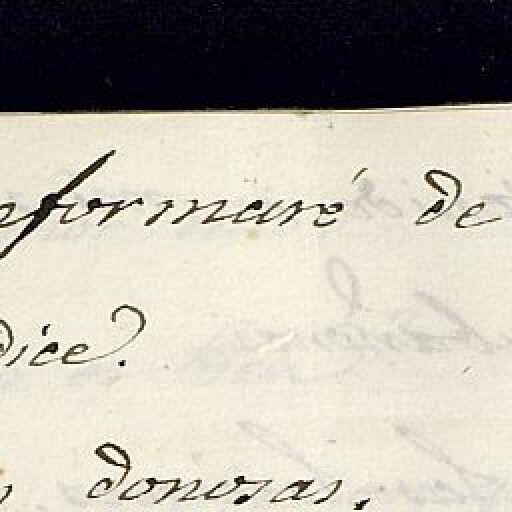 eformaré de
dice?
donosas,